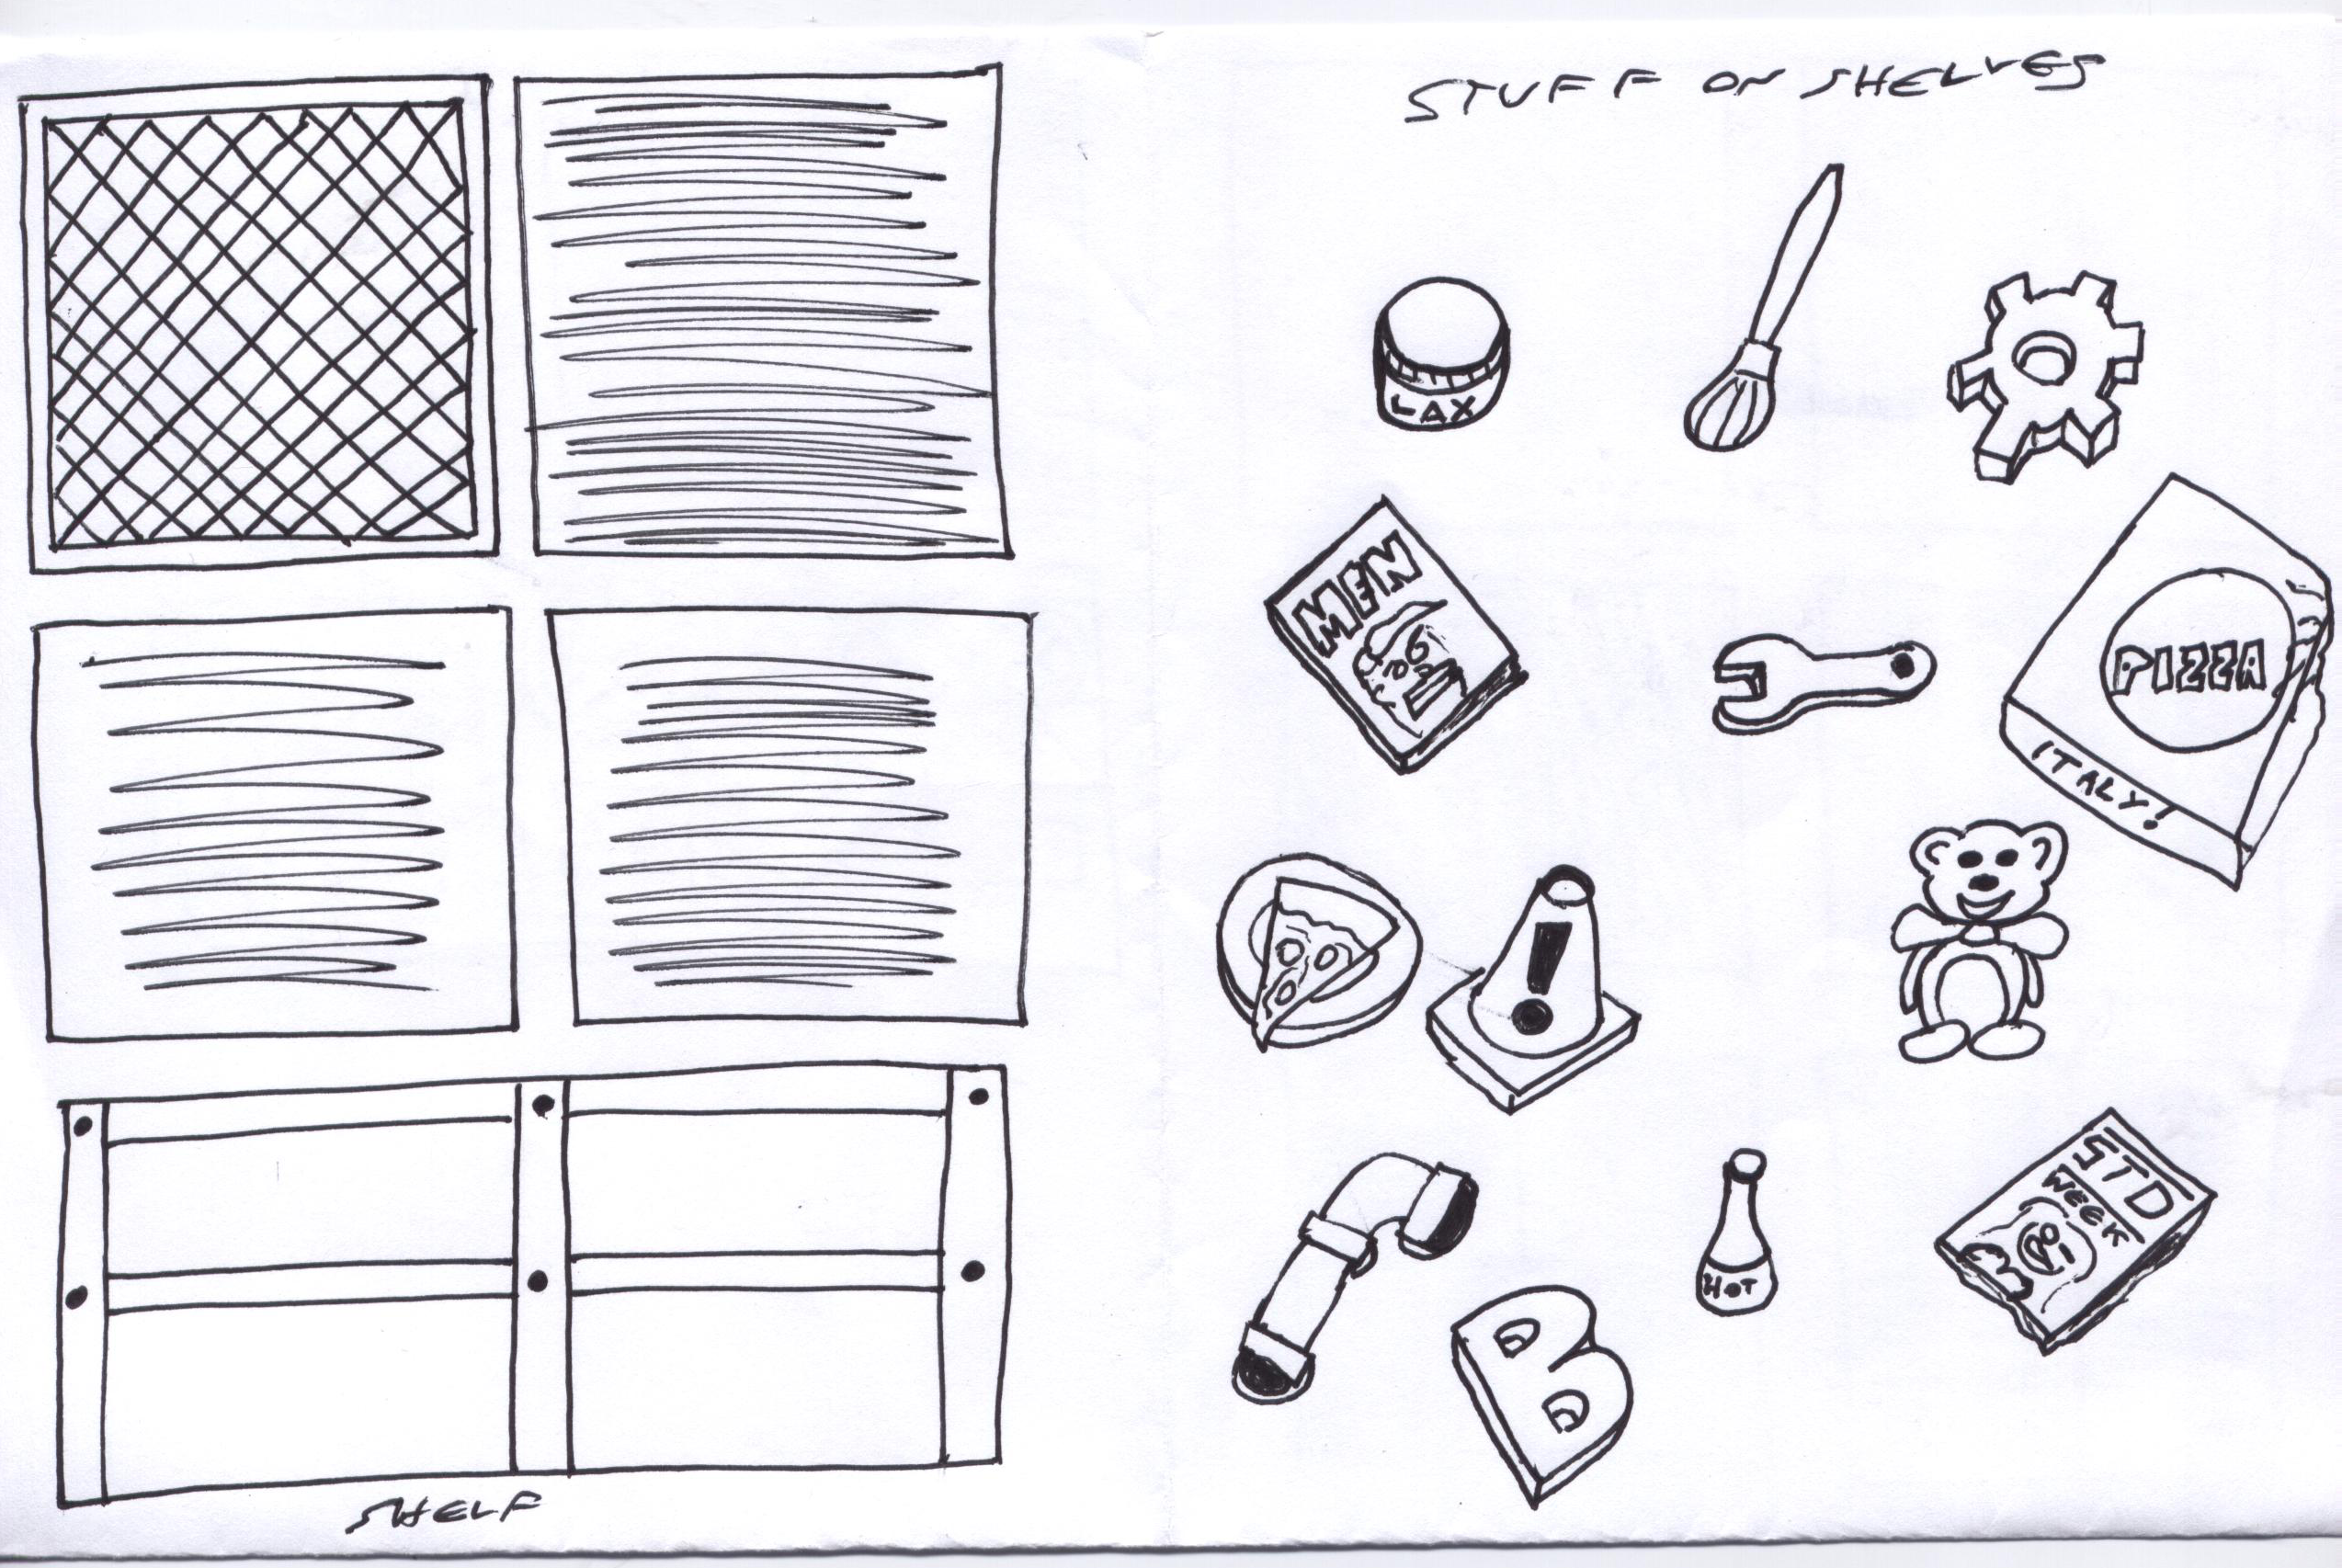 STUFF ON SHELVES
LAX
MEN
PIZZA
ITALY!
!
HOT
STD
WEEK
B
SHELF